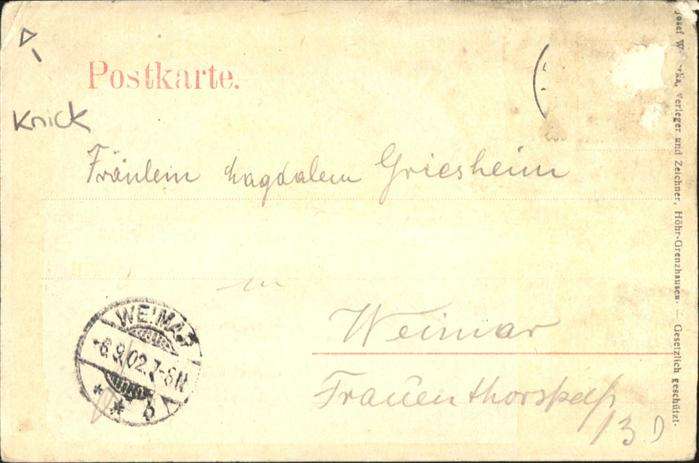 Postkarte.
Knick
Fräulein Magdalena Griesheim
in
Weimar
13 D
WEIMAR
6.9.02.7-8N
* * b
Verleger und Zeichner, Höhr-Grenzhausen. — Gesetzlich geschützt.